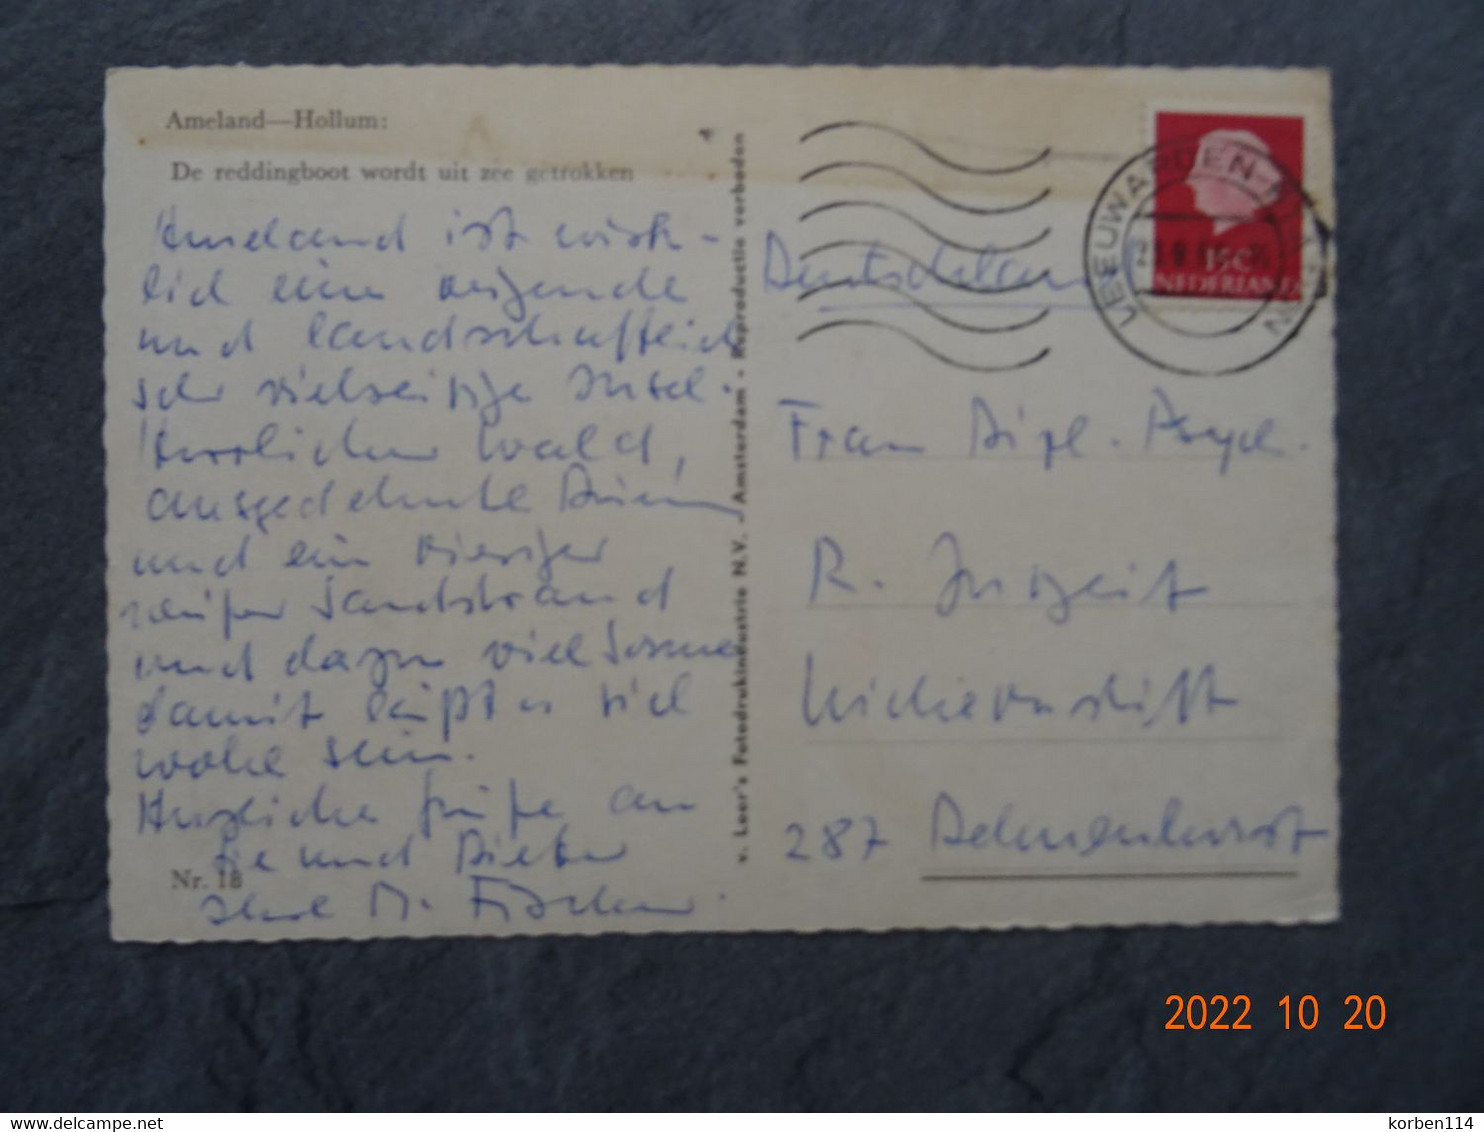 Ameland—Hollum:
De reddingboot wordt uit zee getrokken
Ameland ist wirk-
lich eine reizende
und landschaftlich
sehr vielseitige Insel.
Herrlicher Wald,
ausgedehnte Dünen
und ein riesiger
Sandstrand
und dazu viel Sonne
damit läßt es sich
wohl sein.
Herzliche Grüße an
Sie und Dieter
Ihre M. Fischer.
Nr. 18
v. Leer's Fotodrukindustrie N.V. - Amsterdam - Reproductie verboden
LEEUWARDEN
15c
NEDERLAND
Deutschland
Frau Dipl.-Psych.
R.
287 Delmenhorst
2022 10 20
delcampe.net
korben114